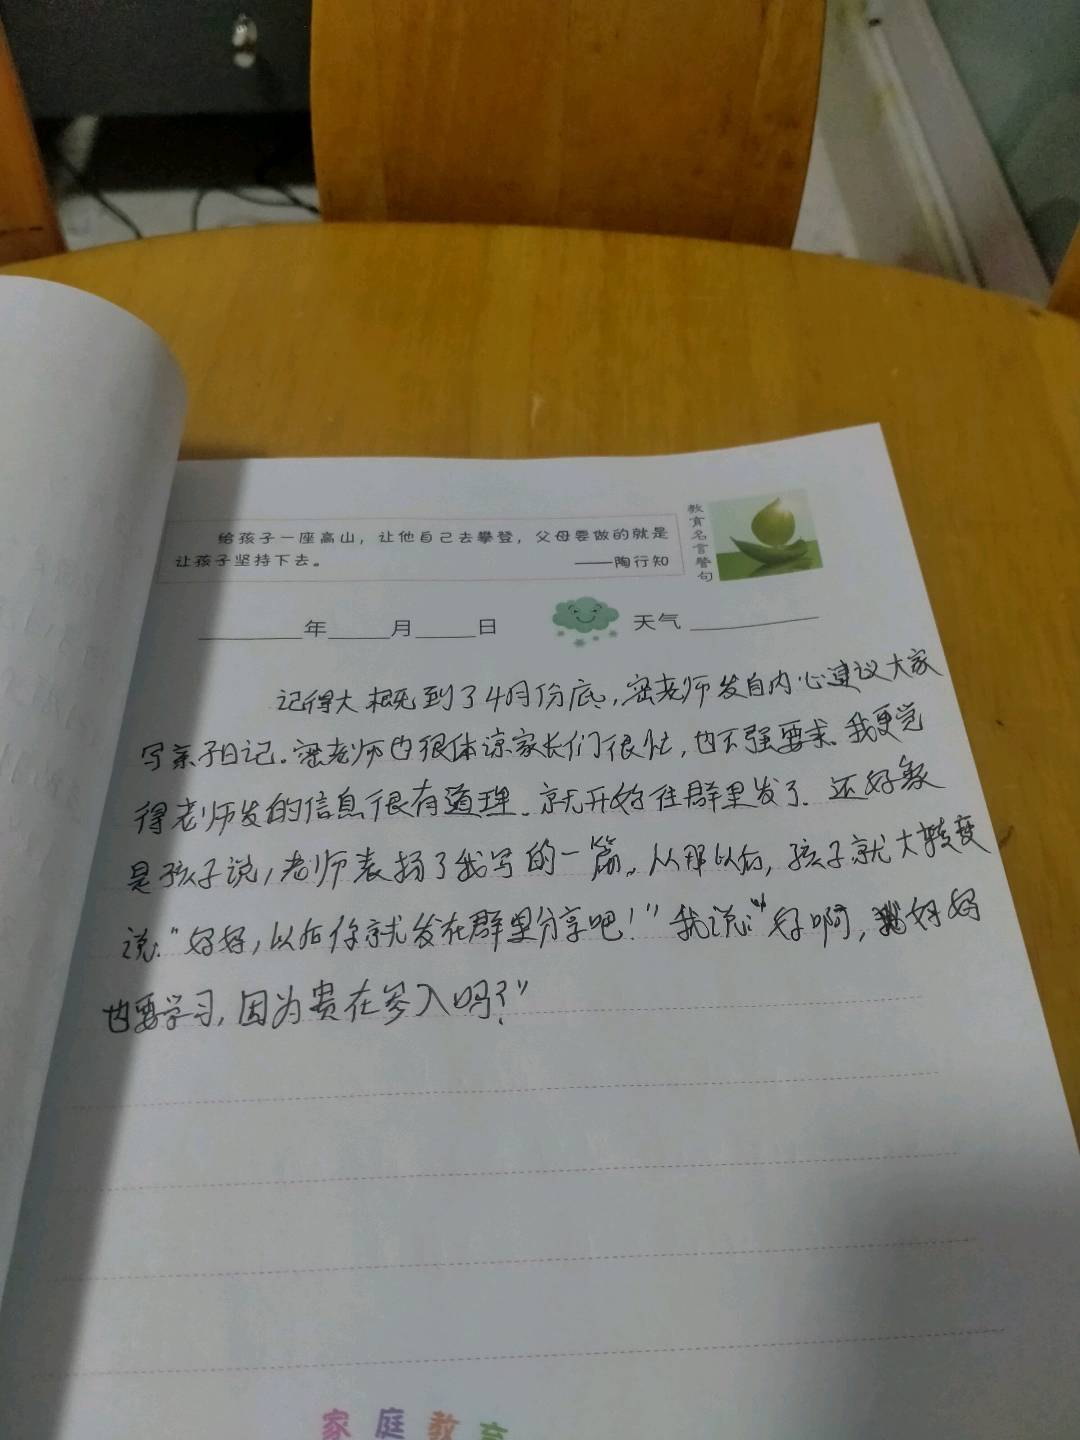 给孩子一座高山，让他自己去攀登，父母要做的就是
让孩子坚持下去。 ——陶行知
教育名言警句
年 月 日 天气
记得大概到了4月份底，密老师发自内心建议大家
写亲子日记。密老师也很体谅家长们很忙，也不强要求。我更觉
得老师发的信息很有道理。就开始往群里发了。还好象
是孩子说，老师表扬了我写的一篇。从那以后，孩子就大转变
说："好好，以后你就发在群里分享吧！"我说："好啊，妈妈
也要学习，因为贵在参入吗？"
家庭教育